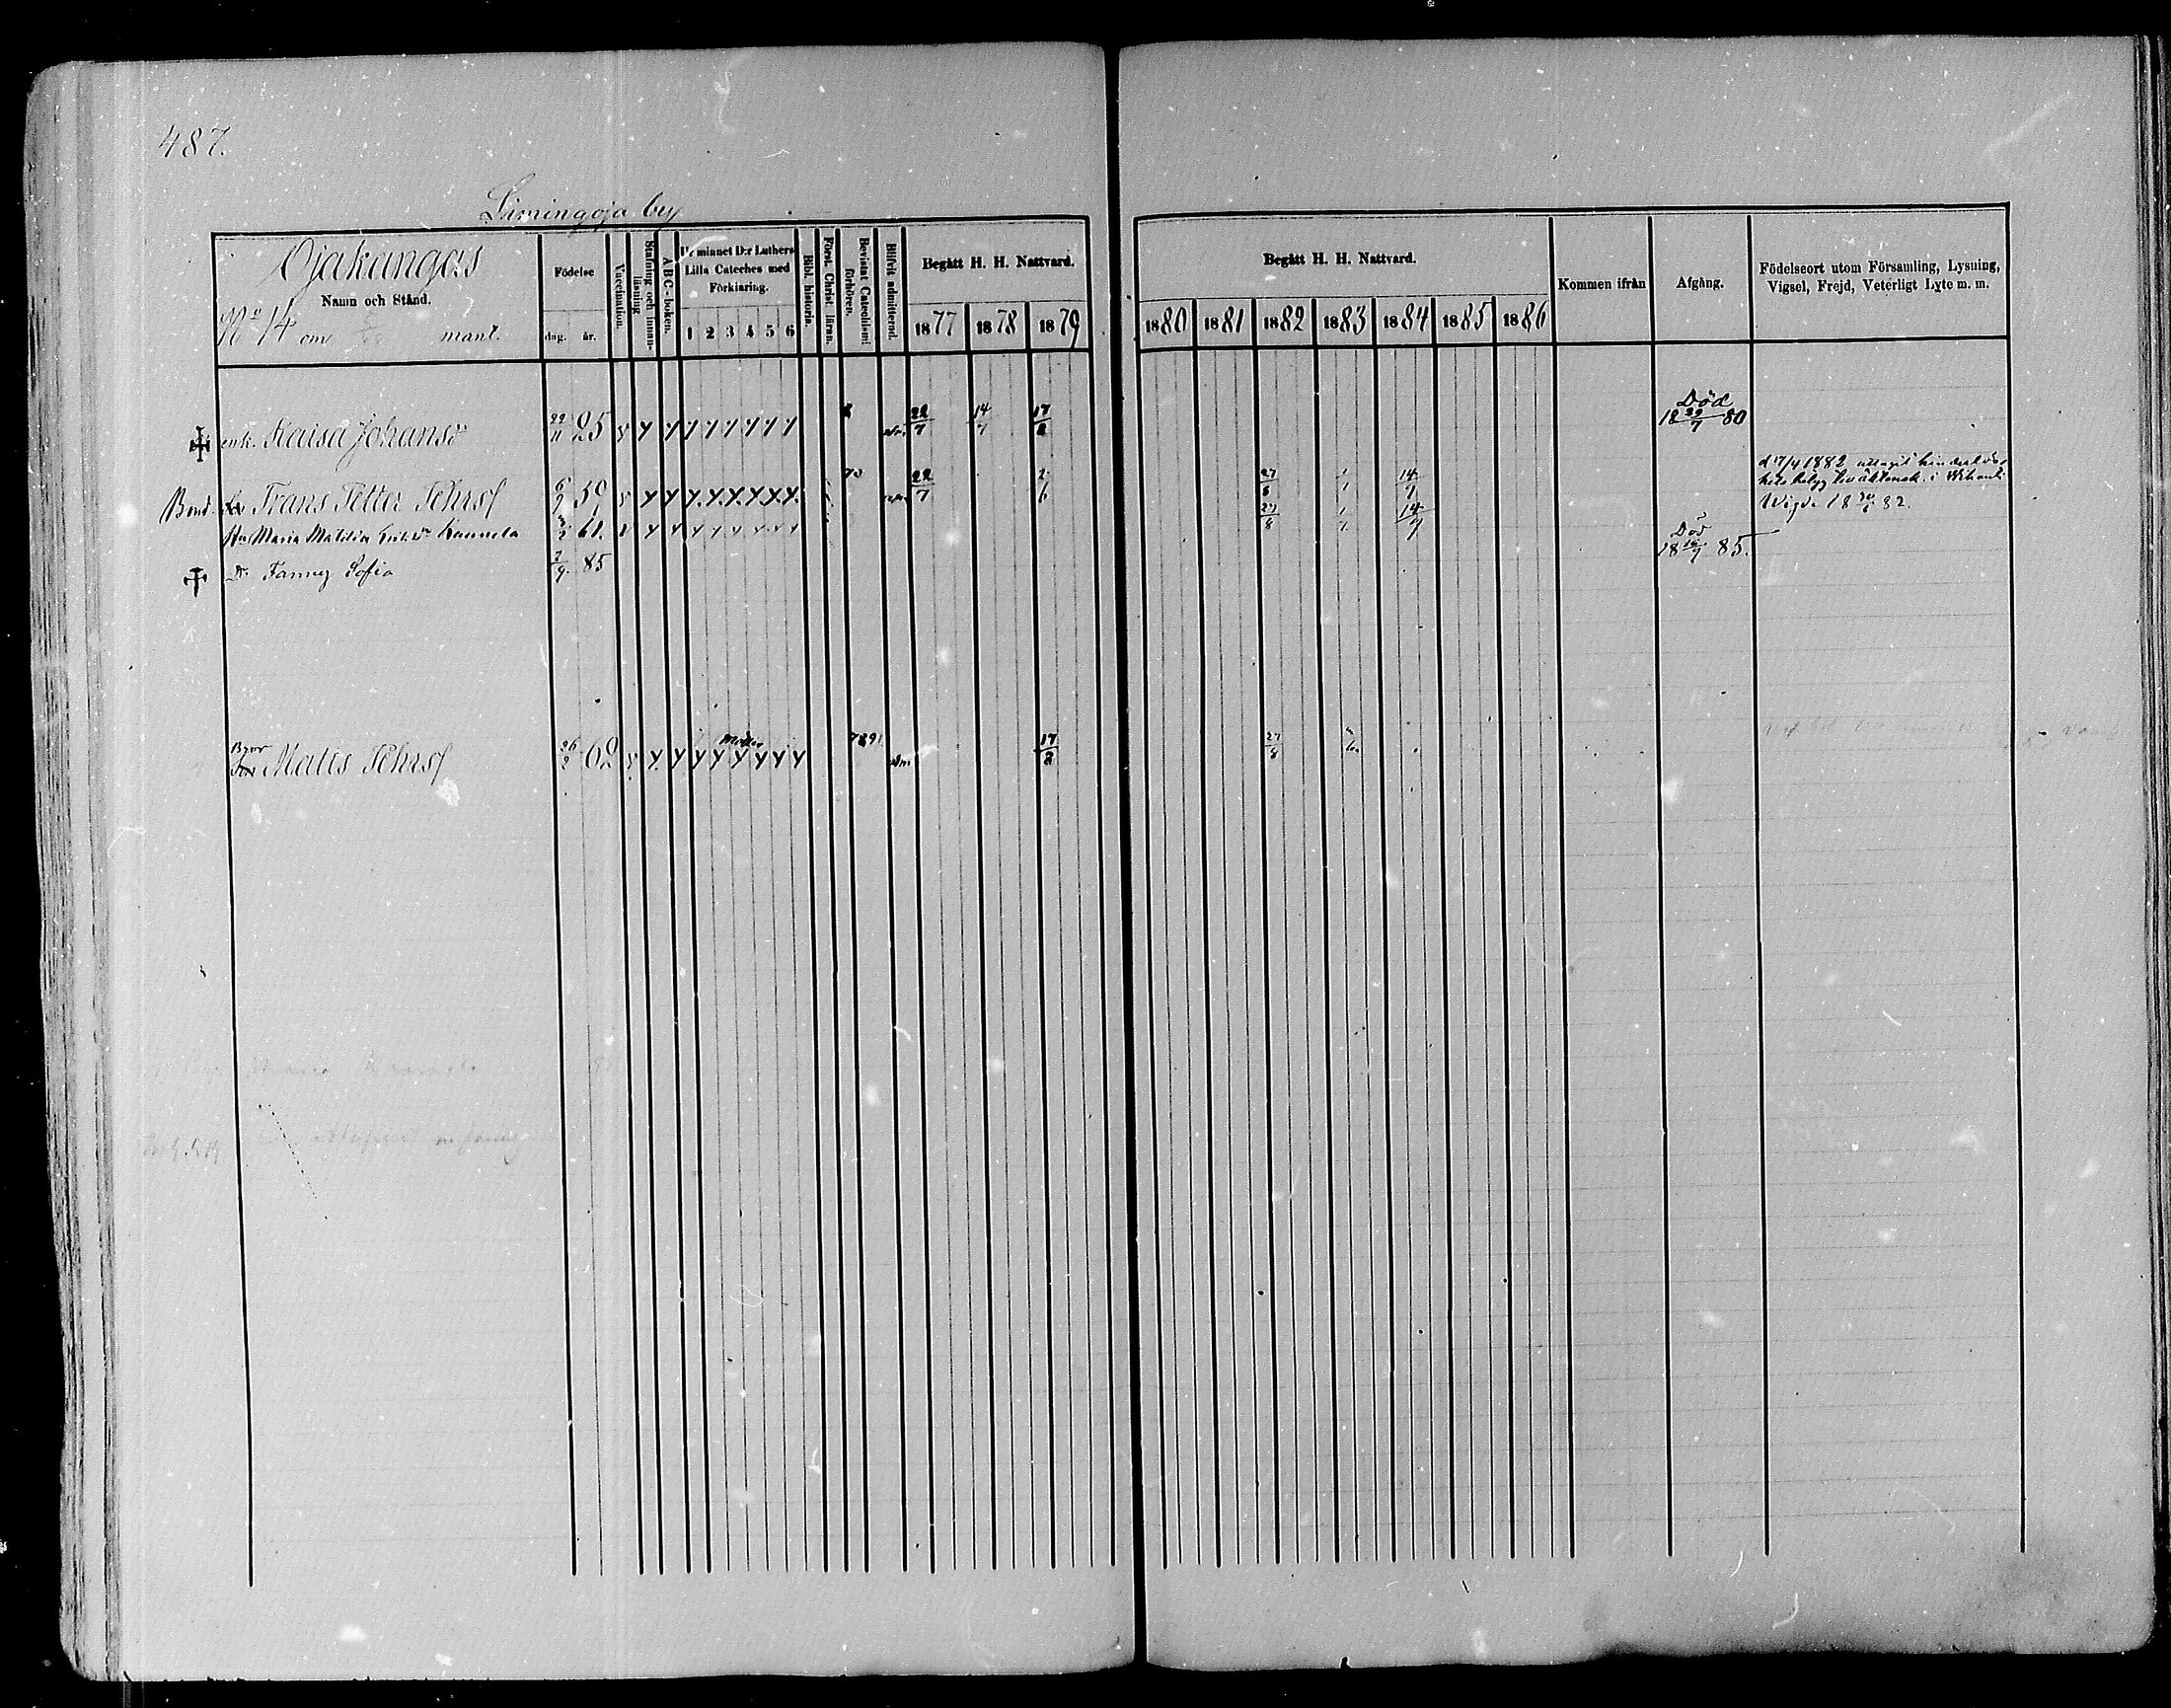 487.
Limingoja by
Ojakangas
Namn och Stånd.
No 14 om mant.
Födelse
dag. år.
Vaccination.
Stafning och innanläsning
A B C-boken.
Ur minnet D:r Luthers
Lilla Cateches med
Förklaring.
1 2 3 4 5 6
Bibl. historia.
Först. Christ. läran.
Bevistat Catechismi förhören.
Blifvit admitterad.
Begått H. H. Nattvard.
1877 1878 1879
Begått H. H. Nattvard.
1880 1881 1882 1883 1884 1885 1886
Kommen ifrån
Afgång.
Födelseort utom Församling, Lysning,
Vigsel, Frejd, Veterligt Lyte m. m.
enk. Kaisa Johansd 22/11 25 22/7 14/7 17/8 Död 18 29/7 80
Bond. Frans Petter Pehrsf 6/9 59 70 22/7 2/6 27/8 14/7 d 17/4 1882
Hu Maria Matilda Kannela 61. 27/8 14/7 Wigde 18 82.
D. Fanny Sofia 2/9. 85 Död 18 85.
Matts Pehrsf 26/2 62 7891 17/8 27/8